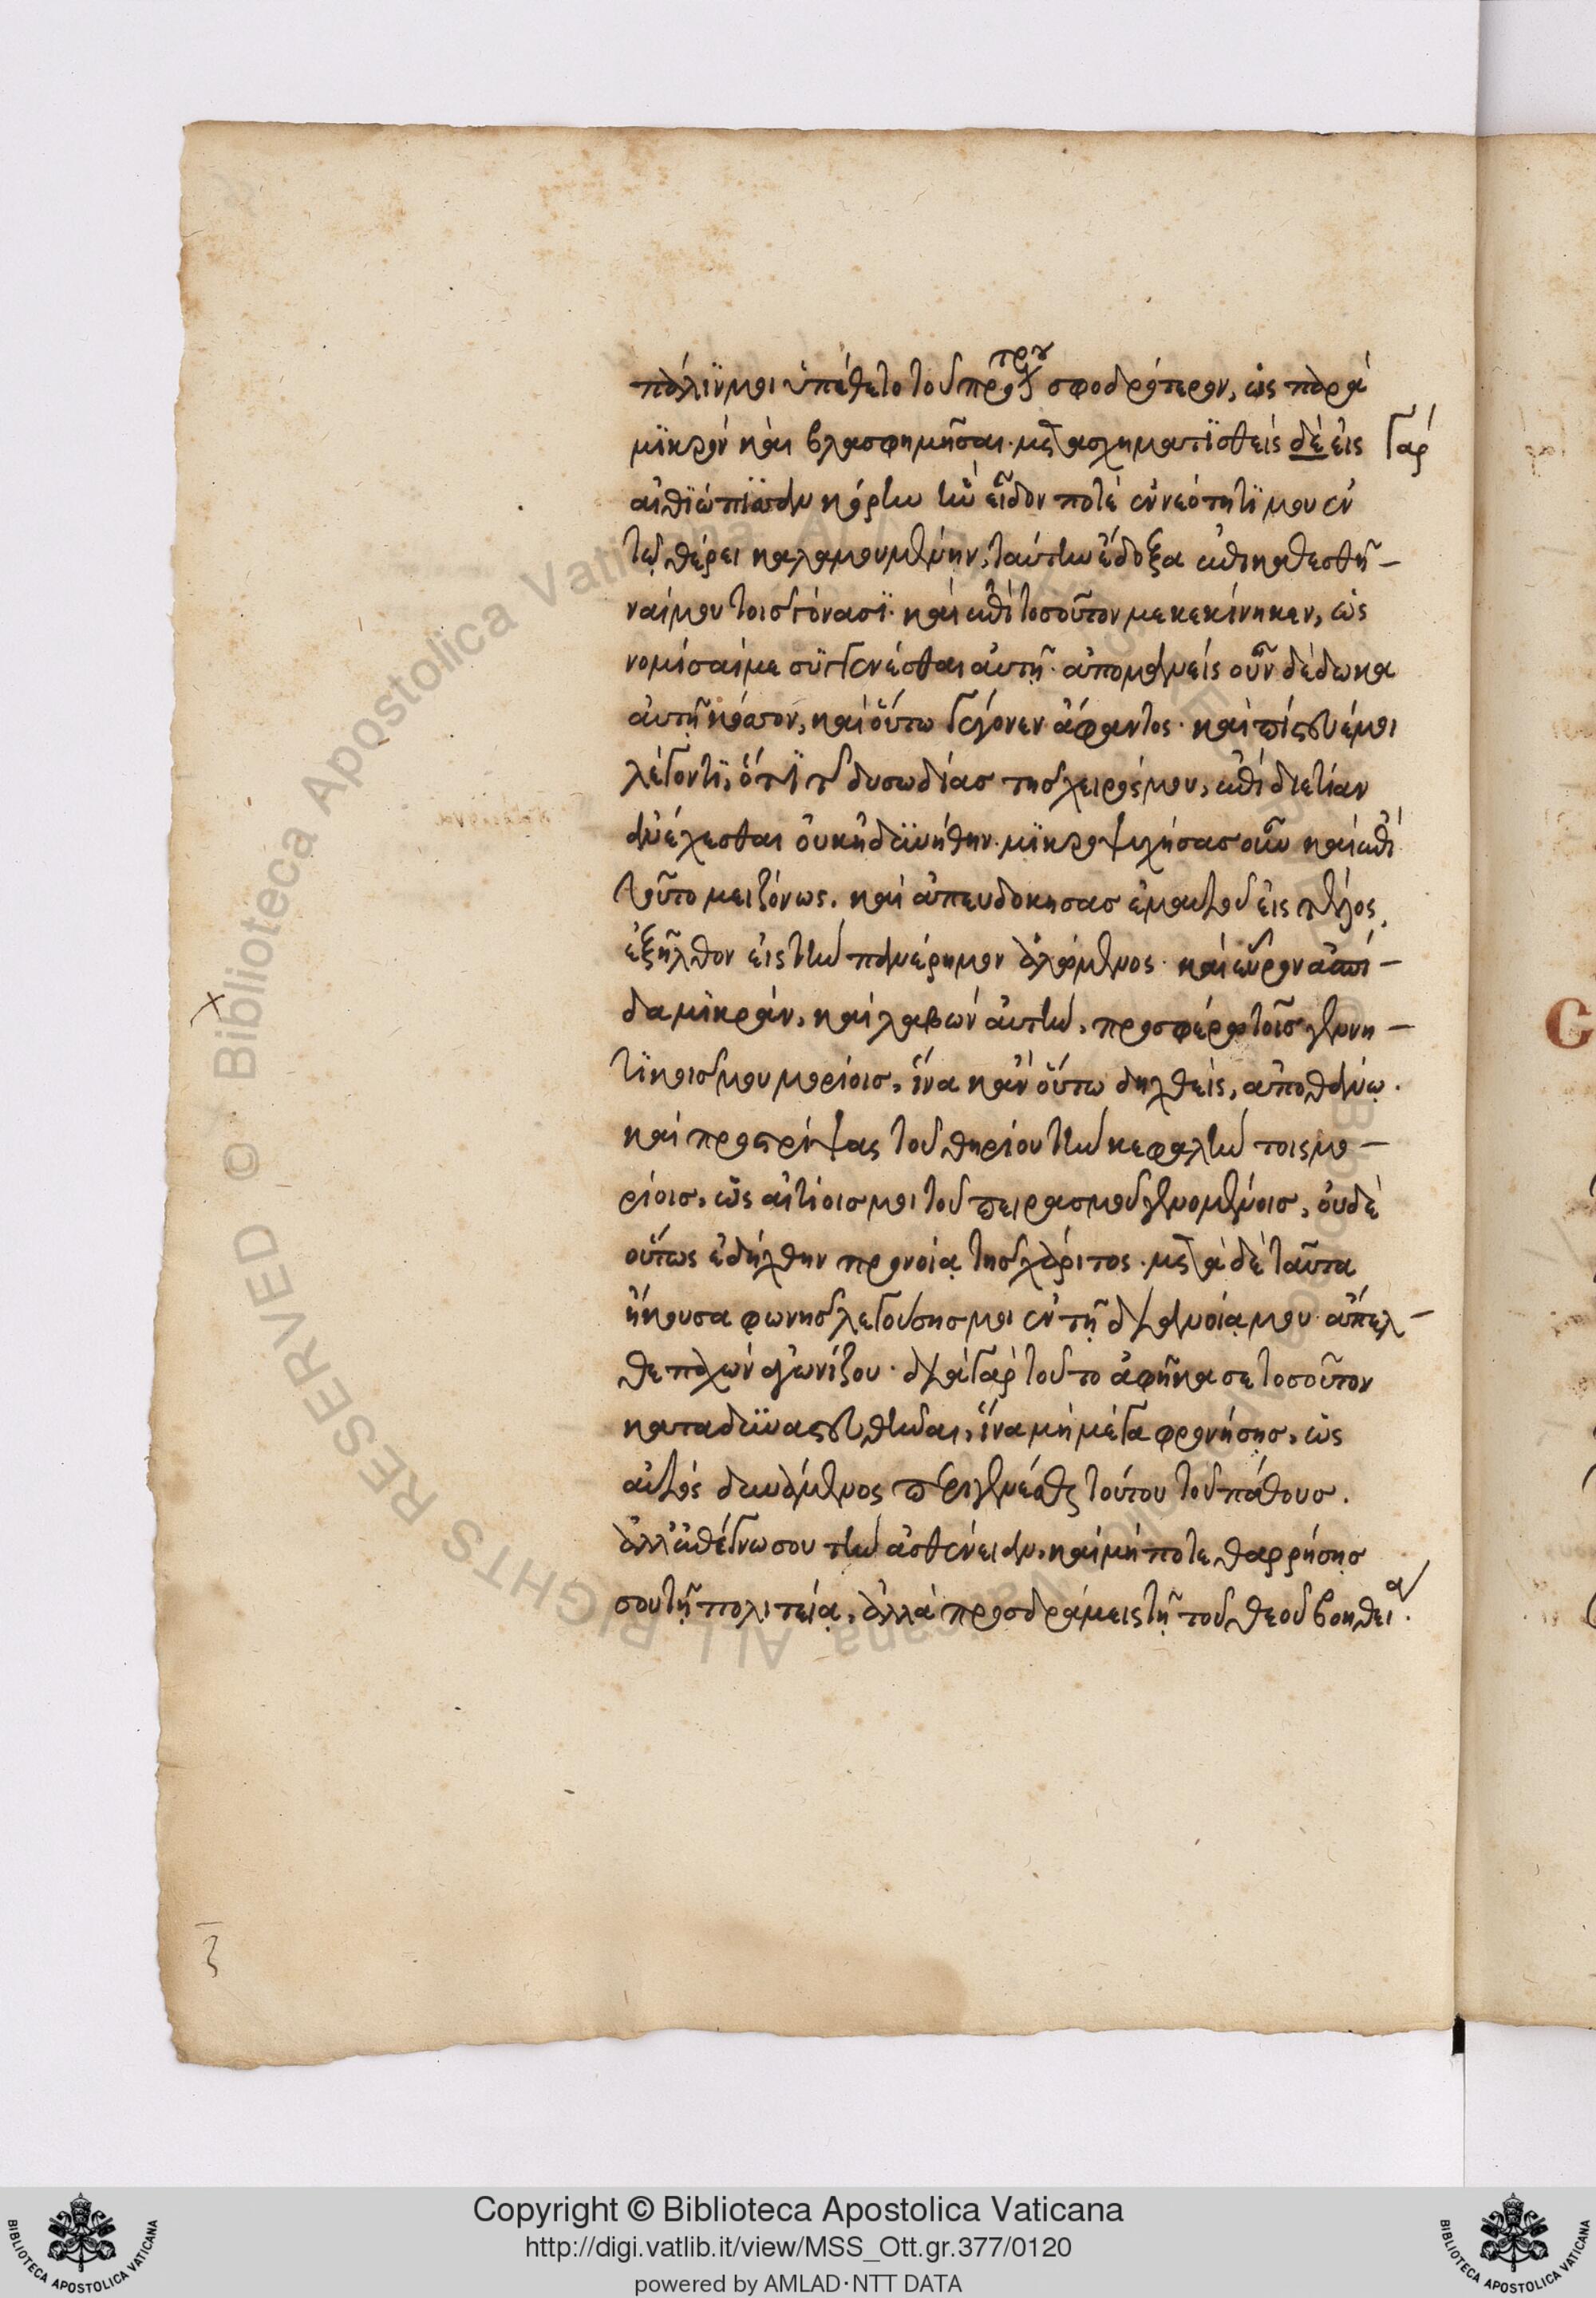 πάλιν μοι ὑπέθετο τοῦ προτέρου σφοδρότερον, ὡς παρὰ
μϊκρὸν καὶ βλασφημῆσαι· μετασχηματϊσθεὶς δὲ εἰς γὰρ
αἰθϊώπϊσσαν κόρην ἣν εἶδον ποτὲ ἐν νεότητϊ μου ἐν
τῷ θέρει καλαμουμένην, ταύτην ἔδοξα ἐπικαθεσθῆ-
ναί μου τοῖς γόνασϊ· καὶ ἐπὶ τοσοῦτον με κεκίνηκεν, ὡς
νομίσαί με συγγενέσθαι αὐτῇ· ἀπομανεὶς οὖν δέδωκα
αὐτῇ κόσσον, καὶ οὕτω γέγονεν ἄφαντος· καὶ πίστευέ μοι
λέγοντϊ, ὅτϊ τῆς δυσωδίας τῆς χειρός μου, ἐπὶ διετίαν
ἀνέχεσθαι οὐκ ἠδϋνήθην· μϊκροψυχήσας οὖν καὶ ἐπὶ
τοῦτο μειζόνως, καὶ ἀπευδοκησας ἐμαυτοῦ εἰς τέλος,
ἐξῆλθον εἰς τὴν πανέρημον ἀλώμενος· καὶ εὗρον ἀσπί-
δα μϊκράν, καὶ λαβὼν αὐτήν, προσφέρω τοῖς γεννη-
τϊκοῖς μου μορίοις, ἵνα κἂν οὕτω δηχθεὶς, ἀποθάνω.
καὶ προστρίψας τοῦ θηρίου τὴν κεφαλὴν τοῖς μο-
ρίοις, ὡς αἰτίοις μοι τοῦ πειρασμοῦ γενομένοις, οὐδὲ
οὕτως ἐδήχθην προνοίᾳ τῆς χάριτος· μετὰ δὲ ταῦτα
ἤκουσα φωνῆς λεγούσης μοι ἐν τῇ διανοίᾳ μου· ἄπελ-
θε παχὼν ἀγωνίζου· διὰ γὰρ τοῦτο ἀφῆκα σε τοσοῦτον
καταδϋναστευθῆναι, ἵνα μὴ μέγα φρονήσῃς, ὡς
αὐτὸς δυνάμενος περιγενέσθαι τούτου τοῦ πάθους.
ἀλλ' ἐπέγνω σου τὴν ἀσθένειαν, καὶ μήποτε θαρρήσῃς
σου τῇ πολιτείᾳ, ἀλλὰ προσδράμεις τῇ τοῦ θεοῦ βοηθείᾳ.
ζ
Copyright © Biblioteca Apostolica Vaticana
http://digi.vatlib.it/view/MSS_Ott.gr.377/0120
powered by AMLAD·NTT DATA